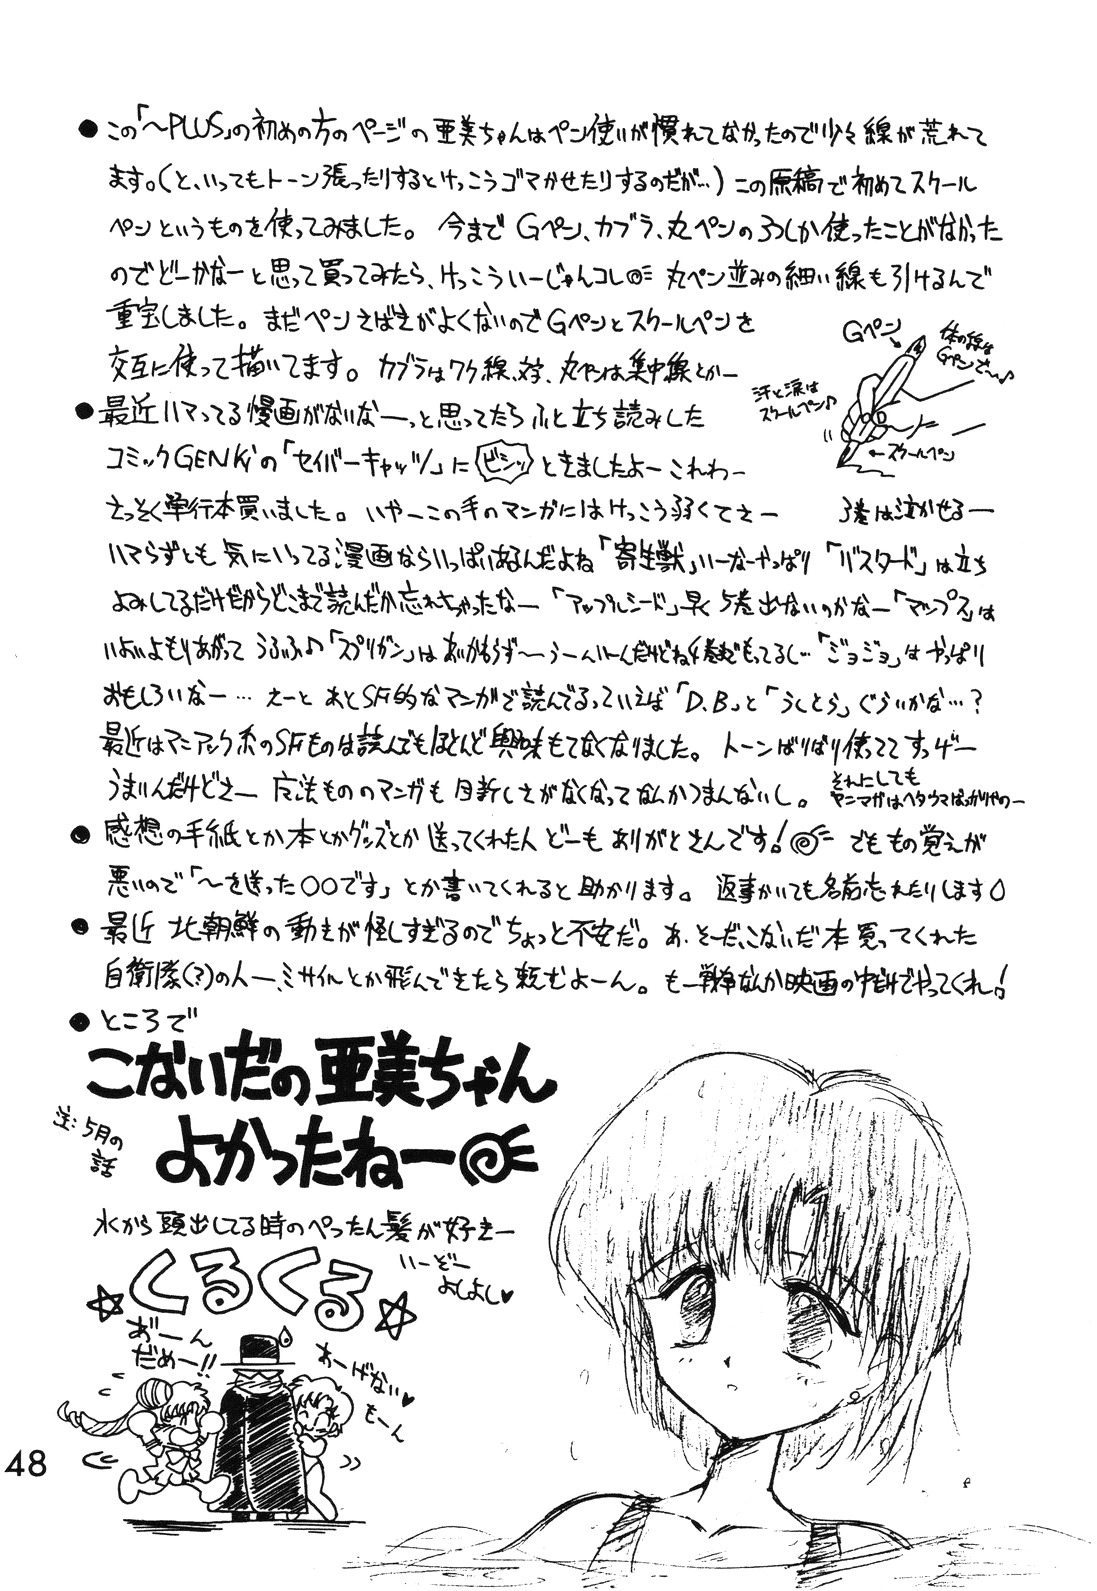 ●この「〜PLUS」の初めの方のページの亜美ちゃんはペン使いが慣れてなかったので少々線が荒れて
ます。(と、いってもトーン張ったりするとけっこうゴマかせたりするのだが…)この原稿で初めてスクール
ペンというものを使ってみました。今までGペン、カブラ、丸ペンの3つしか使ったことがなかった
のでどーかなーと思って買ってみたら、けっこういーじゃんコレ 丸ペン並みの細い線も引けるんで
重宝しました。まだペンさばきがよくないのでGペンとスクールペンを
交互に使って描いてます。カブラはワク線、文字、丸ペンは集中線とかー
Gペン
体の線は
Gペンで〜♪
汗と涙は
スクールペン♪
←スクールペン
●最近ハマってる漫画がないなーっと思ってたらふと立ち読みした
コミックGENKiの「セイバーキャッツ」に ビシッ ときましたよー これわー
さっそく単行本買いました。いやーこの手のマンガにはけっこう弱くてさー 3巻は泣かせるー
ハマらずとも気にいってる漫画ならいっぱいあるんだよね「寄生獣」いーなーやっぱり「バスタード」は立ち
よみしてるだけだからどこまで読んだか忘れちゃったなー「アップルシード」早く5巻出ないのかなー「マップス」は
いよいよもりあがって うふふ♪「スプリガン」はあいかわらず〜うーんいーんだけどね4巻までもってるし…「ジョジョ」はやっぱり
おもしろいなー… えーと あとSF的なマンガで読んでるっていえば「D.B」と「うしとら」ぐらいかな…?
最近はマニアック系のSFものは読んでもほとんど興味もてなくなりました。トーンばりばり使っててすっげー
うまいんだけどさー 魔法もののマンガも目新しさがなくなってなんかつまんないし。
それにしても
ヤニマガはヘタウマばっかりやのー
●感想の手紙とか本とかグッズとか送ってくれた人どーもありがとさんです! でももの覚えが
悪いので「〜を送った〇〇です」とか書いてくれると助かります。返事かいても名前忘れたりします
●最近 北朝鮮の動きが怪しすぎるのでちょっと不安だ。あ、そーだ、こないだ本買ってくれた
自衛隊(?)の人ー、ミサイルとか飛んできたら頼むよーん。もー戦争なんか映画の中だけでやってくれ!
●ところで
こないだの亜美ちゃん
よかったねー
注:5月の
話
水から頭出してる時のぺったん髪が好きー
いーぞー
よしよし♥
☆くるくる☆
あ゛ーん
だめー!!
あーげない♥
もーん
48